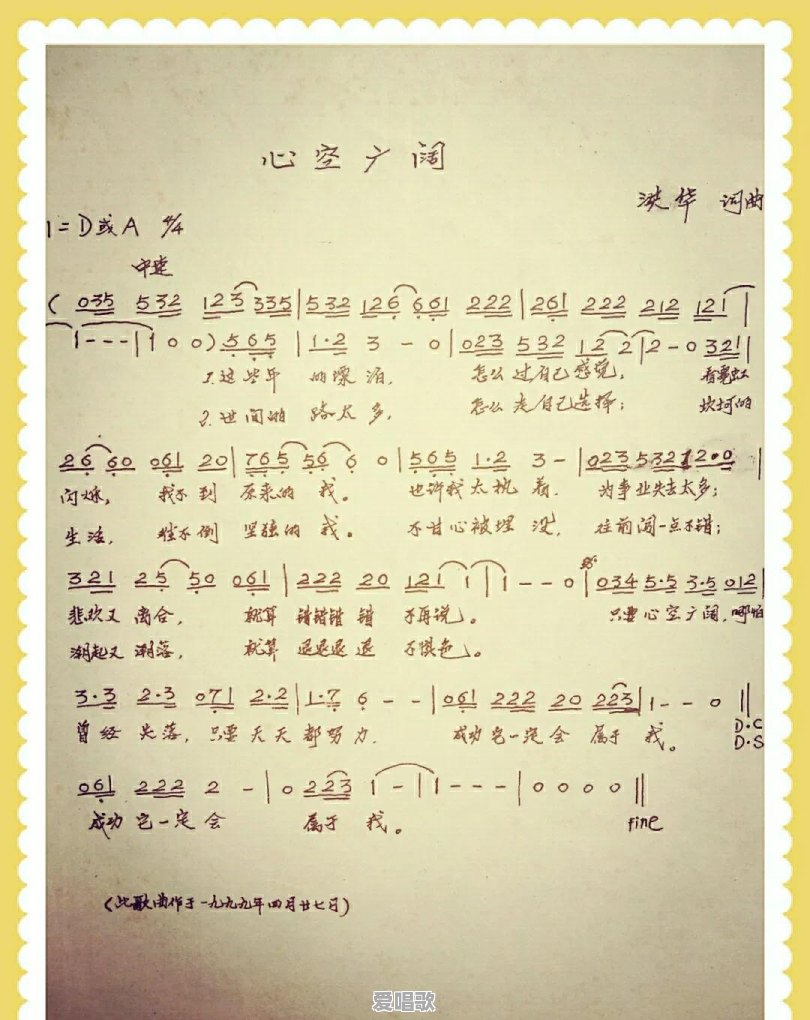 心空广阔
洪华 词曲
1=D或A 4/4
中速
( 035 532 123 335 | 532 126 661 222 | 261 222 212 121 |
1 - - - | 1 0 0 ) 565 | 1·2 3 - 0 | 023 532 12 2 | 2 - 0 321 |
1.这些年 的漂泊, 怎么过自己感觉, 看霓虹
2.世间的 路太多, 怎么走自己选择; 坎坷的
26 60 061 20 | 765 56 6 0 | 565 1·2 3 - | 023 532 12·0 |
闪烁, 找不到 原来的 我。 也许我太执着. 为事业失去太多;
生活, 难不倒 坚强的 我。 不甘心被埋没, 往前闯一点不错;
321 25 50 061 | 222 20 121 1 | 1 - - 0 | 034 5·5 3·5 012 |
悲欢又离合, 就算 错错错 错 不再说。 只要心空广阔, 哪怕
潮起又潮落, 就算 退退退 退 不惧色。
3·3 2·3 071 2·2 | 1·7 6 - - | 061 222 20 223 | 1 - - 0 ||
曾经失落, 只要天天都努力. 成功它一定会 属于 我。 D·C
D·S
061 222 2 - | 0 223 1 - | 1 - - - | 0 0 0 0 ||
成功它一定会 属于 我。 fine
(此歌曲作于一九九九年四月廿七日)
爱唱歌